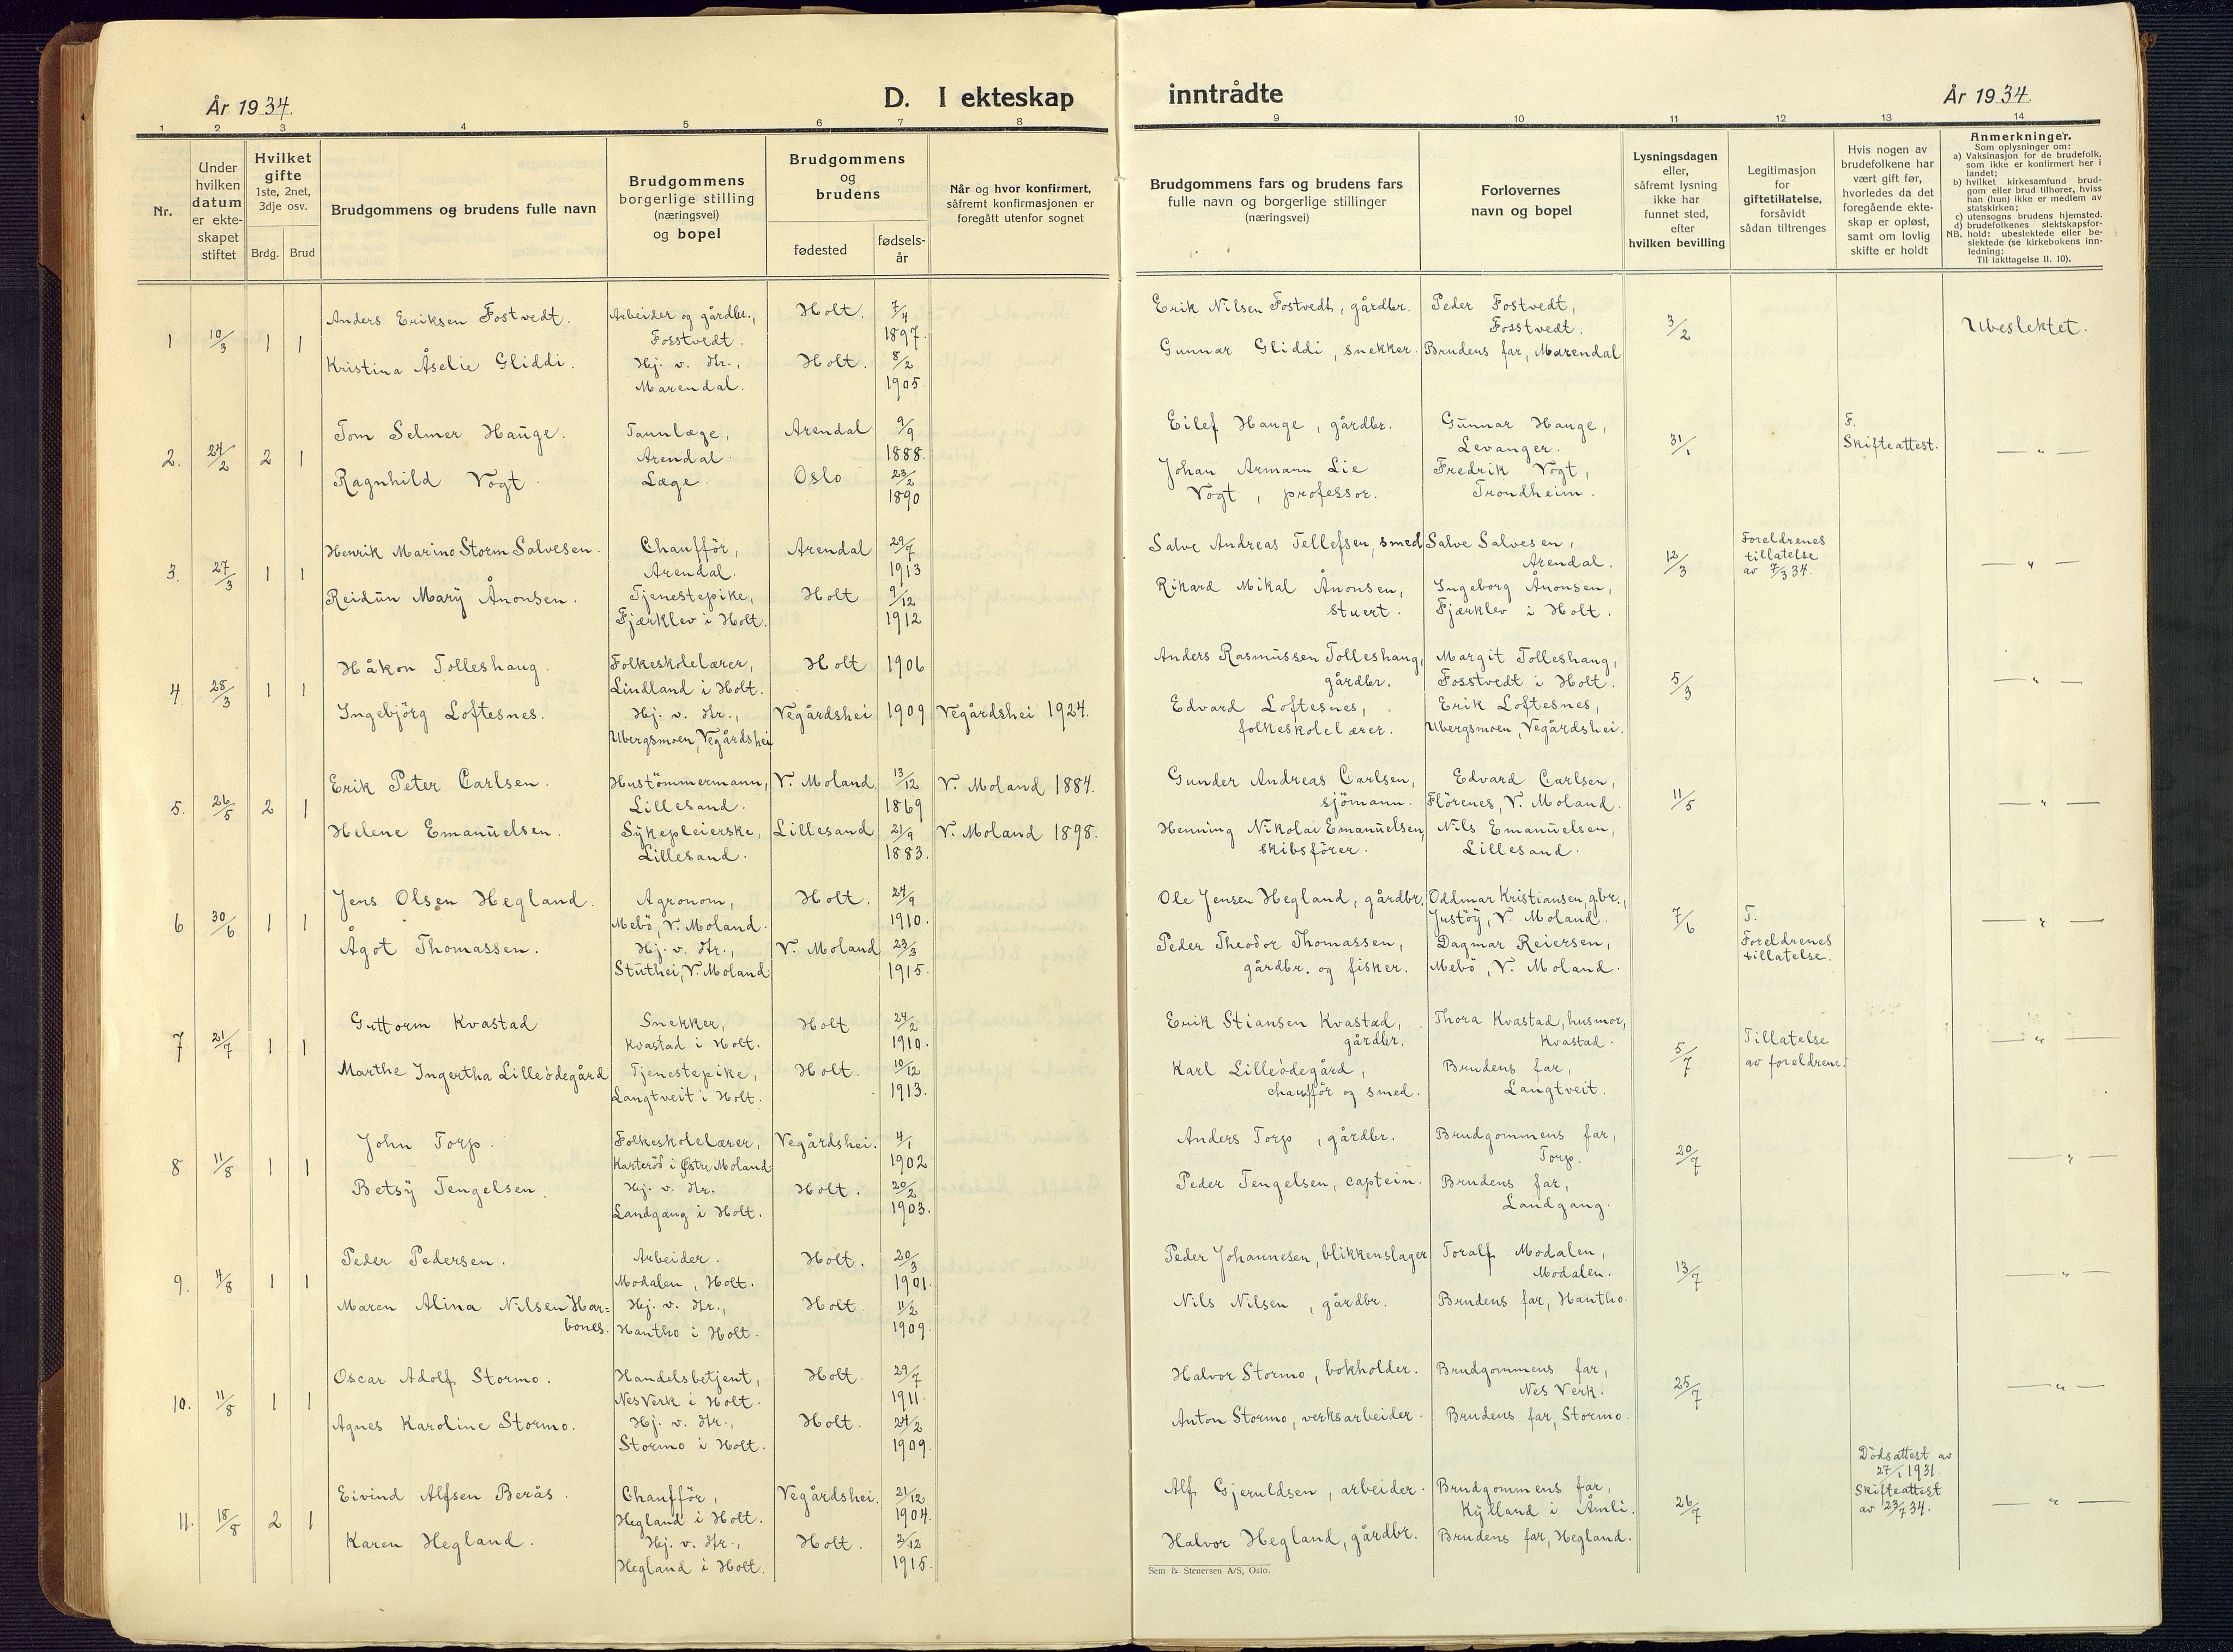 År 1934.
D. I ekteskap
inntrådte
År 1934.
1 2 3 4 5 6 7 8 9 10 11 12 13 14
Nr.
Under hvilken datum er ekteskapet stiftet
Hvilket gifte 1ste, 2net, 3dje osv.
Brdg. Brud
Brudgommens og brudens fulle navn
Brudgommens borgerlige stilling (næringsvei) og bopel
Brudgommens og brudens
fødested
fødselsår
Når og hvor konfirmert, såfremt konfirmasjonen er foregått utenfor sognet
Brudgommens fars og brudens fars fulle navn og borgerlige stillinger (næringsvei)
Forlovernes navn og bopel
Lysningsdagen eller, såfremt lysning ikke har funnet sted, efter hvilken bevilling
Legitimasjon for giftetillatelse, forsåvidt sådan tiltrenges
Hvis nogen av brudefolkene har vært gift før, hvorledes da det foregående ekteskap er opløst, samt om lovlig skifte er holdt
Anmerkninger.
Som oplysninger om:
a) Vaksinasjon for de brudefolk, som ikke er konfirmert her i landet;
b) hvilket kirkesamfund brudgom eller brud tilhører, hviss han (hun) ikke er medlem av statskirken;
c) utensogns brudens hjemsted.
d) brudefolkenes slektskapsforhold: ubeslektede eller beslektede (se kirkebokens innledning:
NB.
Til iakttagelse II. 10).
1 10/3 1 1 Anders Eriksen Fostvedt. Arbeider og gårdbr., Fosstvedt. Holt. 7/4 1897. Erik Nilsen Fostvedt, gårdbr. Peder Fostvedt, Fosstvedt. 3/2 Ubeslektet.
Kristina Åselie Gliddi. Hj. v. Hr., Marendal. Holt. 8/2 1905 Gunnar Gliddi, snekker. Brudens far, Marendal
2. 24/2 2 1 Tom Selmer Hauge. Tannlæge, Arendal. Arendal 9/9 1888. Eilef Hauge, gårdbr. Gunnar Hauge, Levanger. 31/1 F. Skifteattest. — " —
Ragnhild Vogt. Læge. Oslo 23/2 1890 Johan Armann Lie Vogt, professor. Fredrik Vogt, Trondheim.
3. 27/3 1 1 Henrik Marino Storm Salvesen. Chaufför, Arendal. Arendal 29/7 1913 Salve Andreas Tellefsen, smed Salve Salvesen, Arendal. 12/3 Foreldrenes tillatelse av 7/3 34. — " —
Reidun Mary Ånonsen. Tjenestepike, Fjærklev i Holt. Holt 9/12 1912 Rikard Mikal Ånonsen, stuert. Ingeborg Ånonsen, Fjærklev i Holt.
4 28/3 1 1 Håkon Tolleshaug. Folkeskolelærer, Lindland i Holt. Holt 1906 Anders Rasmussen Tolleshaug, gårdbr. Margit Tolleshaug, Fosstvedt i Holt. 5/3 — " —
Ingebjörg Loftesnes. Hj. v. Hr., Ubergsmoen, Vegårdshei Vegårdshei 1909 Vegårdshei 1924. Edvard Loftesnes, folkeskolelærer. Erik Loftesnes, Ubergsmoen, Vegårdshei.
5. 26/5 2 1 Erik Peter Carlsen. Hustömmermann, Lillesand. V. Moland 13/12 1869 V. Moland 1884. Gunder Andreas Carlsen, sjömann. Edvard Carlsen, Flörenes, V. Moland. 11/5 — " —
Helene Emanuelsen. Sykepleierske, Lillesand. Lillesand 21/9 1883. V. Moland 1898. Henning Nikolai Emanuelsen, skibsförer. Nils Emanuelsen, Lillesand.
6 30/6 1 1 Jens Olsen Hegland. Agronom, Mebö, V. Moland. Holt. 24/9 1910. Ole Jensen Hegland, gårdbr. Oddmar Kristiansen, gbr., Justöy, V. Moland. 7/6 T. Foreldrenes tillatelse. — " —
Ågot Thomassen. Hj. v. Hr., Stuthei, V. Moland V. Moland 23/3 1915. Peder Theodor Thomassen, gårdbr. og fisker. Dagmar Reiersen, Mebö, V. Moland.
7 21/7 1 1 Guttorm Kvastad Snekker, Kvastad i Holt. Holt 24/2 1910. Erik Stiansen Kvastad, gårdbr. Thora Kvastad, husmor, Kvastad. 5/7 Tillatelse av foreldrene. — " —
Marthe Ingertha Lilleödegård Tjenestepike, Langtveit i Holt. Holt. 10/12 1913. Karl Lilleödegård, chaufför og smed. Brudens far, Langtveit.
8 11/8 1 1 John Torp. Folkeskolelærer, Karteröd i Østre Moland Vegårdshei. 4/1 1902 Anders Torp, gårdbr. Brudgommens far, Torp. 20/7 — " —
Betsy Tengelsen. Hj. v. Hr. Landgang i Holt. Holt. 20/2 1903. Peder Tengelsen, captein. Brudens far, Landgang.
9. 4/8 1 1 Peder Pedersen. Arbeider. Modalen, Holt. Holt. 20/3 1901. Peder Johannesen, blikkenslager Toralf Modalen, Modalen. 13/7 — " —
Maren Alina Nilsen Harbones. Hj. v. Hr., Hantho i Holt. Holt. 11/2 1909. Nils Nilsen, gårdbr. Brudens far, Hantho.
10. 11/8 1 1 Oscar Adolf Stormo. Handelsbetjent, Nes Verk i Holt. Holt. 29/7 1911. Halvor Stormo, bokholder. Brudgommens far, Nes Verk. 25/7 — " —
Agnes Karoline Stormo. Hj. v. Hr., Stormo i Holt. Holt. 24/2 1909. Anton Stormo, verksarbeider. Brudens far, Stormo.
11. 18/8 2 1 Eivind Alfsen Berås. Chaufför, Hegland i Holt. Vegårdshei. 21/12 1904. Alf Gjeruldsen, arbeider. Brudgommens far, Kylland i Åmli. 26/7 Dödsattest av 27/1 1931. Skifteattest av 23/7 34. — " —
Karen Hegland. Hj. v. Hr., Hegland i Holt. Holt. 2/12 1915. Halvor Hegland, gårdbr. Brudens far, Hegland.
Sem & Stenersen A/S, Oslo.